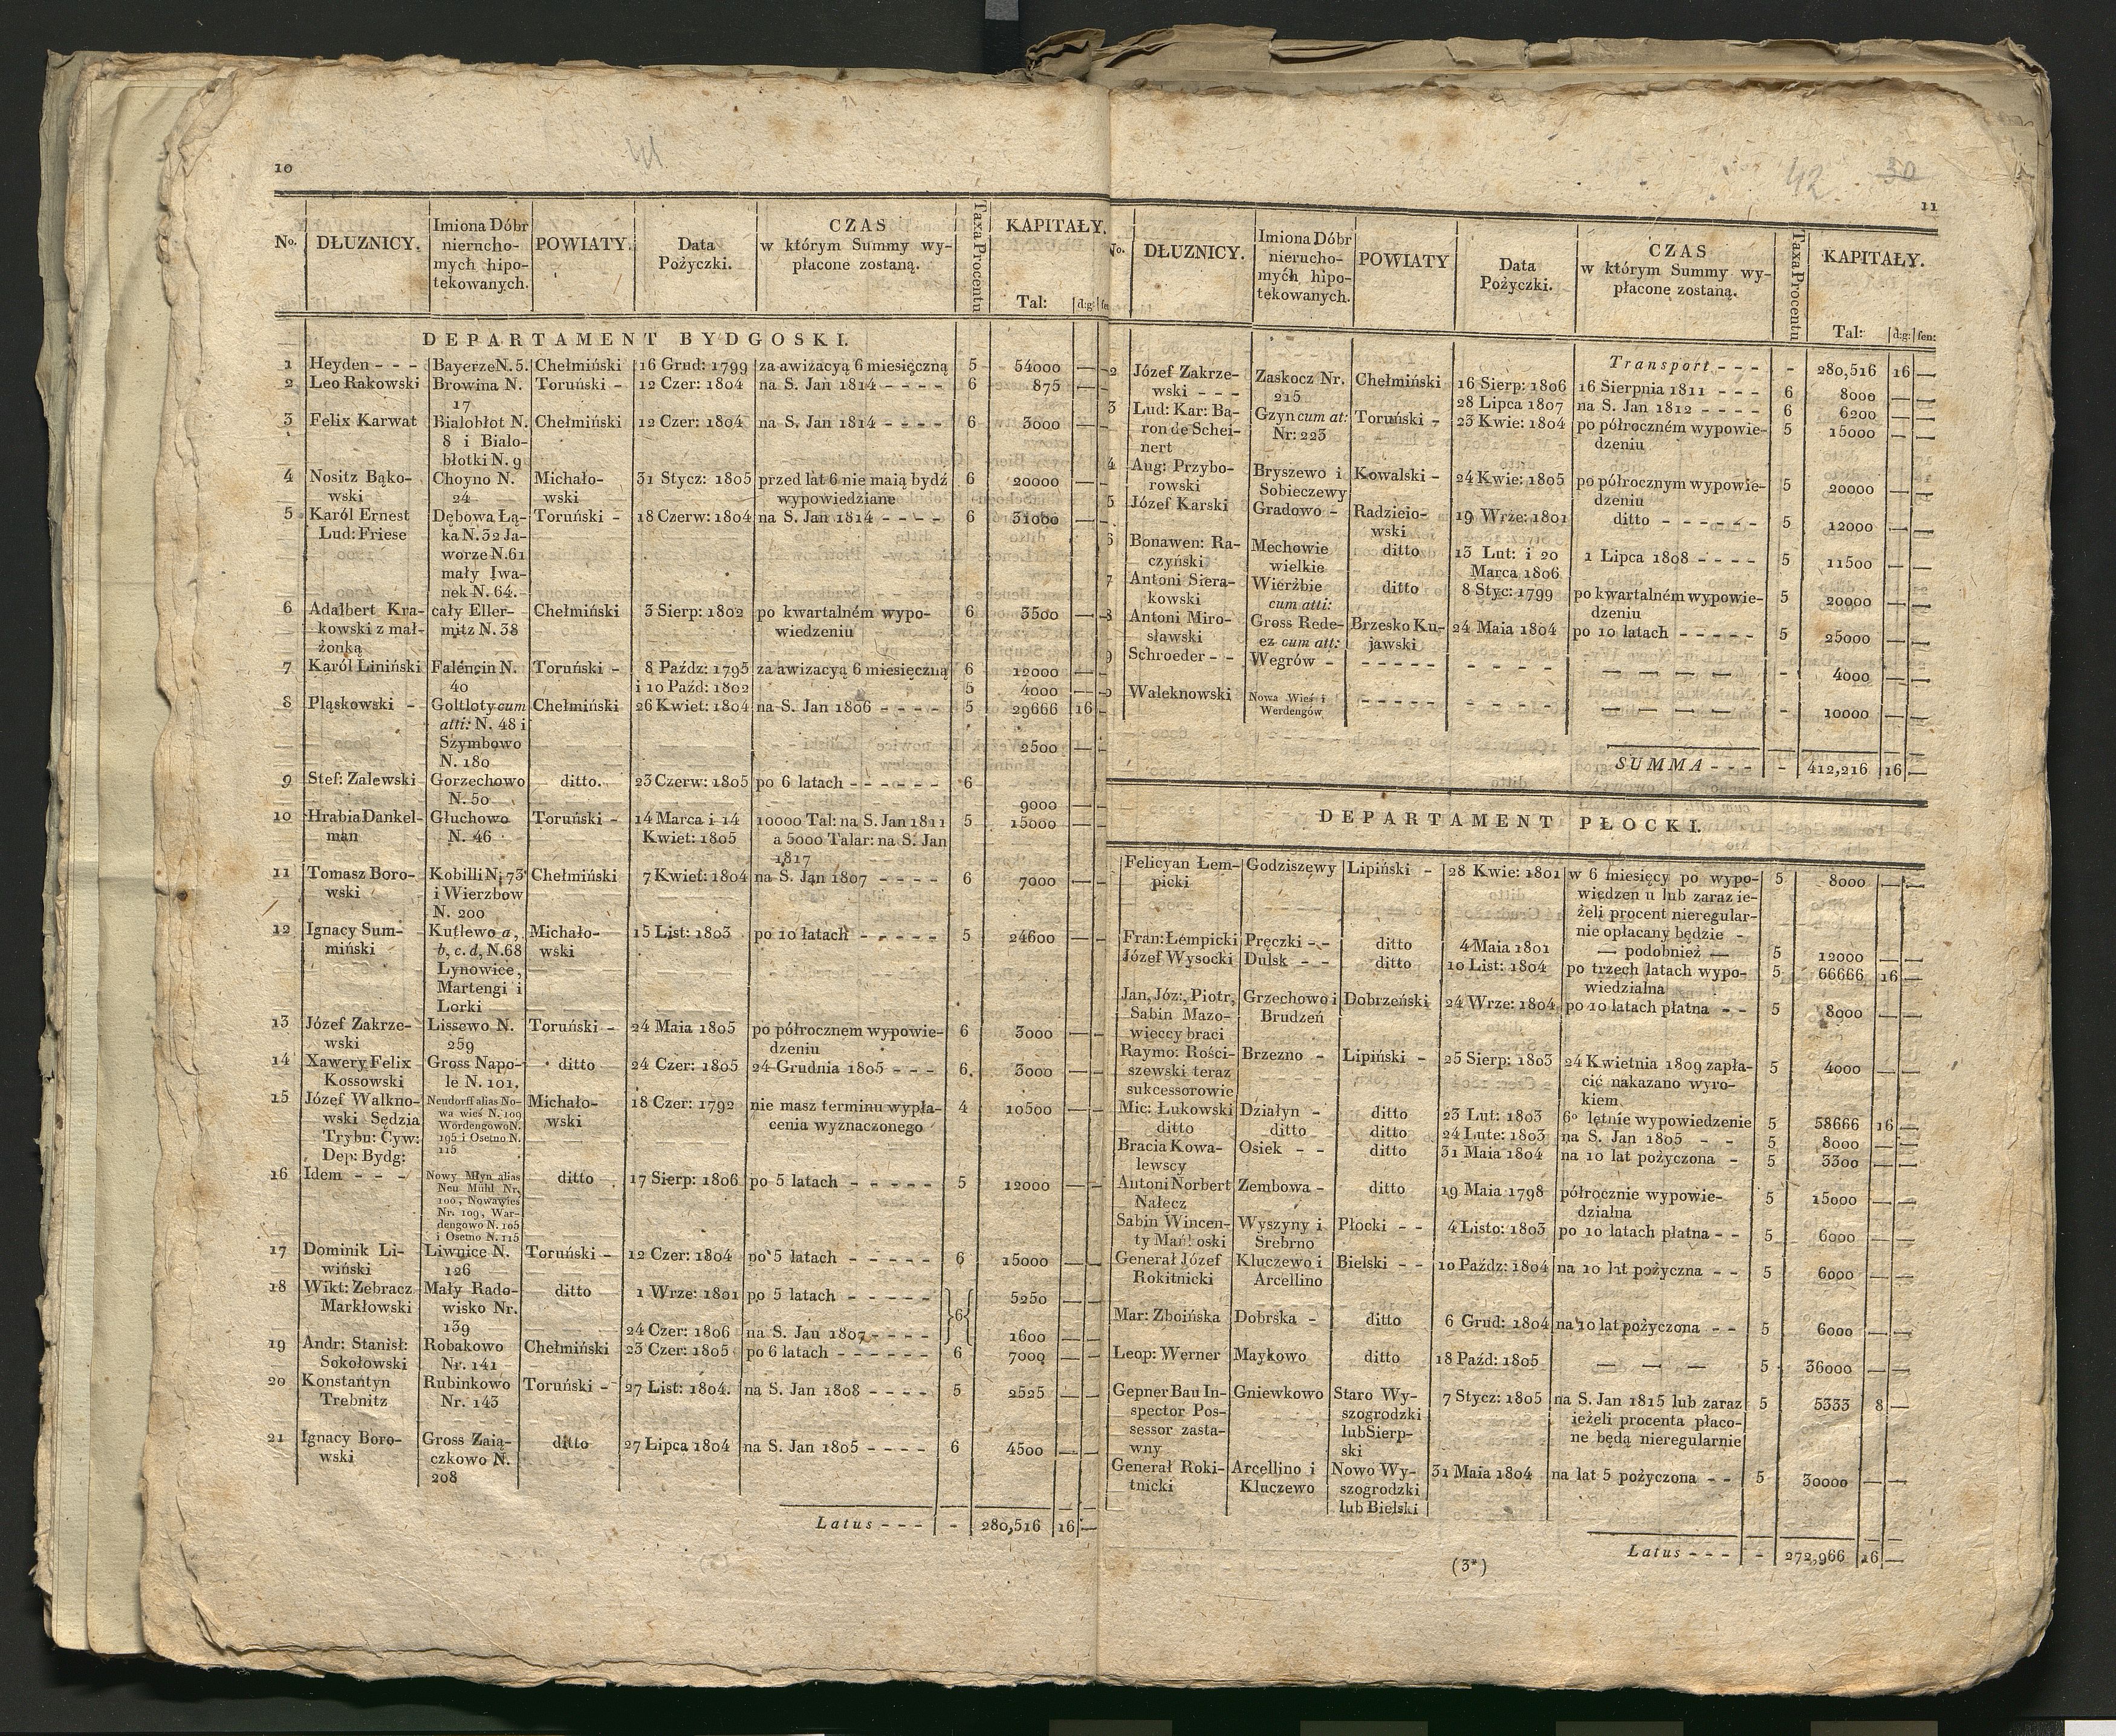 10
41
No. DŁUZNICY. Imiona Dóbr nierucho-mych hipo-tekowanych. POWIATY. Data Pożyczki. CZAS w którym Summy wy-płacone zostaną. Taxa Procentu KAPITAŁY.
Tal: d:g: fe
DEPARTAMENT BYDGOSKI.
1 Heyden - - - Bayerze N. 5. Chełmiński 16 Grud: 1799 za awizacyą 6 miesięczną 5 54000 — —
2 Leo Rakowski Browina N. Toruński - 12 Czer: 1804 na S. Jan 1814 - - - - 6 875 — —
17
3 Felix Karwat Bialobłot N. Chełmiński 12 Czer: 1804 na S. Jan 1814 - - - - 6 3000 — —
8 i Bialo-
błotki N. 9
4 Nositz Bąko- Choyno N. Michało- 31 Stycz: 1805 przed lat 6 nie maią bydź 6 20000 — —
wski 24 wski wypowiedziane
5 Karól Ernest Dębowa Łą- Toruński - 18 Czerw: 1804 na S. Jan 1814 - - - - 6 31000 — —
Lud: Friese ka N. 32 Ja-
worze N. 61
mały Iwa-
nek N. 64.
6 Adalbert Kra- cały Eller- Chełmiński 3 Sierp: 1802 po kwartalném wypo- 6 3500 — —
kowski z mał- mitz N. 38 wiedzeniu
żonką
7 Karól Liniński Falęncin N. Toruński - 8 Paźdz: 1795 za awizacyą 6 miesięczną 6 12000 — —
40 i 10 Paźd: 1802 5 4000 — —
8 Pląskowski - Goltloty cum Chełmiński 26 Kwiet: 1804 na S. Jan 1806 - - - - 5 29666 16 -
atti: N. 48 i
Szymbowo 2500 — —
N. 180
9 Stef: Zalewski Gorzechowo ditto. 23 Czerw: 1805 po 6 latach - - - - - 6
N. 50 9000 — —
10 Hrabia Dankel- Głuchowo Toruński - 14 Marca i 14 10000 Tal: na S. Jan 1811 5 15000 — —
man N. 46 Kwiet: 1805 a 5000 Talar: na S. Jan
1817
11 Tomasz Boro- Kobilli N. 73 Chełmiński 7 Kwiet: 1804 na S. Jan 1807 - - - - 6 7000 — —
wski i Wierzbow
N. 200
12 Ignacy Sum- Kutlewo a, Michało- 15 List: 1803 po 10 latach - - - - - 5 24600 — —
miński b, c. d, N. 68 wski
Lynowice,
Martengi i
Lorki
13 Józef Zakrze- Lissewo N. Toruński - 24 Maia 1805 po półrocznem wypowie- 6 3000 — —
wski 259 dzeniu
14 Xawery Felix Gross Napo- ditto 24 Czer: 1805 24 Grudnia 1805 - - - 6. 3000 — —
Kossowski le N. 101.
15 Józef Walkno- Neudorff alias No- Michało- 18 Czer: 1792 nie masz terminu wypła- 4 10500 — —
wski Sędzia wa wieś N. 109 wski cenia wyznaczonego
Trybu: Cyw: Wordengowo N.
195 i Osetno N.
Dep: Bydg: 115
16 Idem - - - Nowy Młyn alias ditto 17 Sierp: 1806 po 5 latach - - - - - 5 12000 — —
Neu Mühl Nr.
100, Nowawieś
Nr. 109, War-
dengowo N. 105
i Osetno N. 115
17 Dominik Li- Liwnice N. Toruński - 12 Czer: 1804 po 5 latach - - - - - 6 15000 — —
wiński 126
18 Wikt: Zebracz Mały Rado- ditto 1 Wrze: 1801 po 5 latach - - - - - 5250 — —
Markłowski wisko Nr. }6{
139 24 Czer: 1806 na S. Jan 1807 - - - - 1600 — —
19 Andr: Stanisł: Robakowo Chełmiński 23 Czer: 1805 po 6 latach - - - - - - 6 7000 — —
Sokołowski Nr. 141
20 Konstantyn Rubinkowo Toruński - 27 List: 1804. na S. Jan 1808 - - - - 5 2525 — —
Trebnitz Nr. 143
21 Ignacy Boro- Gross Zaią- ditto 27 Lipca 1804 na S. Jan 1805 - - - - 6 4500 — —
wski czkowo N.
208
Latus - - - - 280,516 16 —
42 30
11
No. DŁUZNICY. Imiona Dóbr nierucho-mych hipo-tekowanych. POWIATY Data Pożyczki. CZAS w którym Summy wy-płacone zostaną. Taxa Procentu KAPITAŁY.
Tal: d:g: fen:
Transport - - - - 280,516 16 —
2 Józef Zakrze- Zaskocz Nr. Chełmiński 16 Sierp: 1806 16 Sierpnia 1811 - - - 6 8000 — —
wski - - - 215 28 Lipca 1807 na S. Jan 1812 - - - - 6 6200 — —
3 Lud: Kar: Ba- Gzyn cum at: Toruński - 23 Kwie: 1804 po półroczném wypowie- 5 15000 — —
ron de Schei- Nr: 223 dzeniu
nert
4 Aug: Przybo- Bryszewo i Kowalski - 24 Kwie: 1805 po półrocznym wypowie- 5 20000 — —
rowski Sobieczewy dzeniu
5 Józef Karski Gradowo - Radzieio- 19 Wrze: 1801 ditto - - - - - 5 12000 — —
wski
6 Bonawen: Ra- Mechowie ditto 13 Lut: i 20 1 Lipca 1808 - - - - 5 11500 — —
czyński wielkie Marca 1806
7 Antoni Siera- Wierzbie ditto 8 Styc: 1799 po kwartalném wypowie- 5 20000 — —
kowski cum atti: dzeniu
8 Antoni Miro- Gross Rede- Brzesko Ku- 24 Maia 1804 po 10 latach - - - - - 5 25000 — —
sławski ez cum att: jawski
9 Schroeder - - Wegrów - - - - - - - - - - — — — — - 4000 — —
0 Waleknowski Nowa Wieś i - - - - - - - - - — — — — - 10000 — —
Werdengów
SUMMA - - - - 412,216 16 —
DEPARTAMENT PŁOCKI.
Felicyan Łem- Godziszewy Lipiński - 28 Kwie: 1801 w 6 miesięcy po wypo- 5 8000 — —
picki wiedzen u lub zaraz ie-
żeli procent nieregular-
nie opłacany będzie -
Fran: Łempicki Pręczki - - ditto 4 Maia 1801 — podobnież — 5 12000 — —
Józef Wysocki Dulsk - - ditto 10 List: 1804 po trzech latach wypo- 5 66666 16 —
wiedzialna
Jan, Józ:, Piotr, Grzechowo i Dobrzeński 24 Wrze: 1804 po 10 latach płatna - - 5 8000 — —
Sabin Mazo- Brudzeń
wieccy braci
Raymo: Rości- Brzezno - Lipiński - 25 Sierp: 1803 24 Kwietnia 1809 zapła- 5 4000 — —
szewski teraz cić nakazano wyro-
sukcessorowie kiem
Mic: Łukowski Działyn - ditto 23 Lut: 1803 6º letnie wypowiedzenie 5 58666 16 —
ditto ditto ditto 24 Lute: 1803 na S. Jan 1805 - - 5 8000 — —
Bracia Kowa- Osiek - - ditto 31 Maia 1804 na 10 lat pożyczona - 5 3300 — —
lewscy
Antoni Norbert Zembowa - ditto 19 Maia 1798 półrocznie wypowie- 5 15000 — —
Nałecz dzialna
Sabin Wincen- Wyszyny i Płocki - - 4 Listo: 1803 po 10 latach płatna - - 5 6000 — —
ty oski Srebrno
Generał Józef Kluczewo i Bielski - - 10 Paźdz: 1804 na 10 lat pożyczna - - 5 6000 — —
Rokitnicki Arcellino
Mar: Zboińska Dobrska - ditto 6 Grud: 1804 na 10 lat pożyczona - - 5 6000 — —
Leop: Werner Maykowo ditto 18 Paźd: 1805 — — — 5 36000 — —
Gepner Bau In- Gniewkowo Staro Wy- 7 Stycz: 1805 na S. Jan 1815 lub zaraz 5 5333 8 —
spector Pos- szogrodzki ieżeli procenta płaco-
sessor zasta- lub Sierp- ne będą nieregularnie
wny ski
Generał Roki- Arcellino i Nowo Wy- 31 Maia 1804 na lat 5 pożyczona - - 5 30000 — —
tnicki Kluczewo szogrodzki
lub Bielski
Latus - - - - 272,966 16 —
(3*)